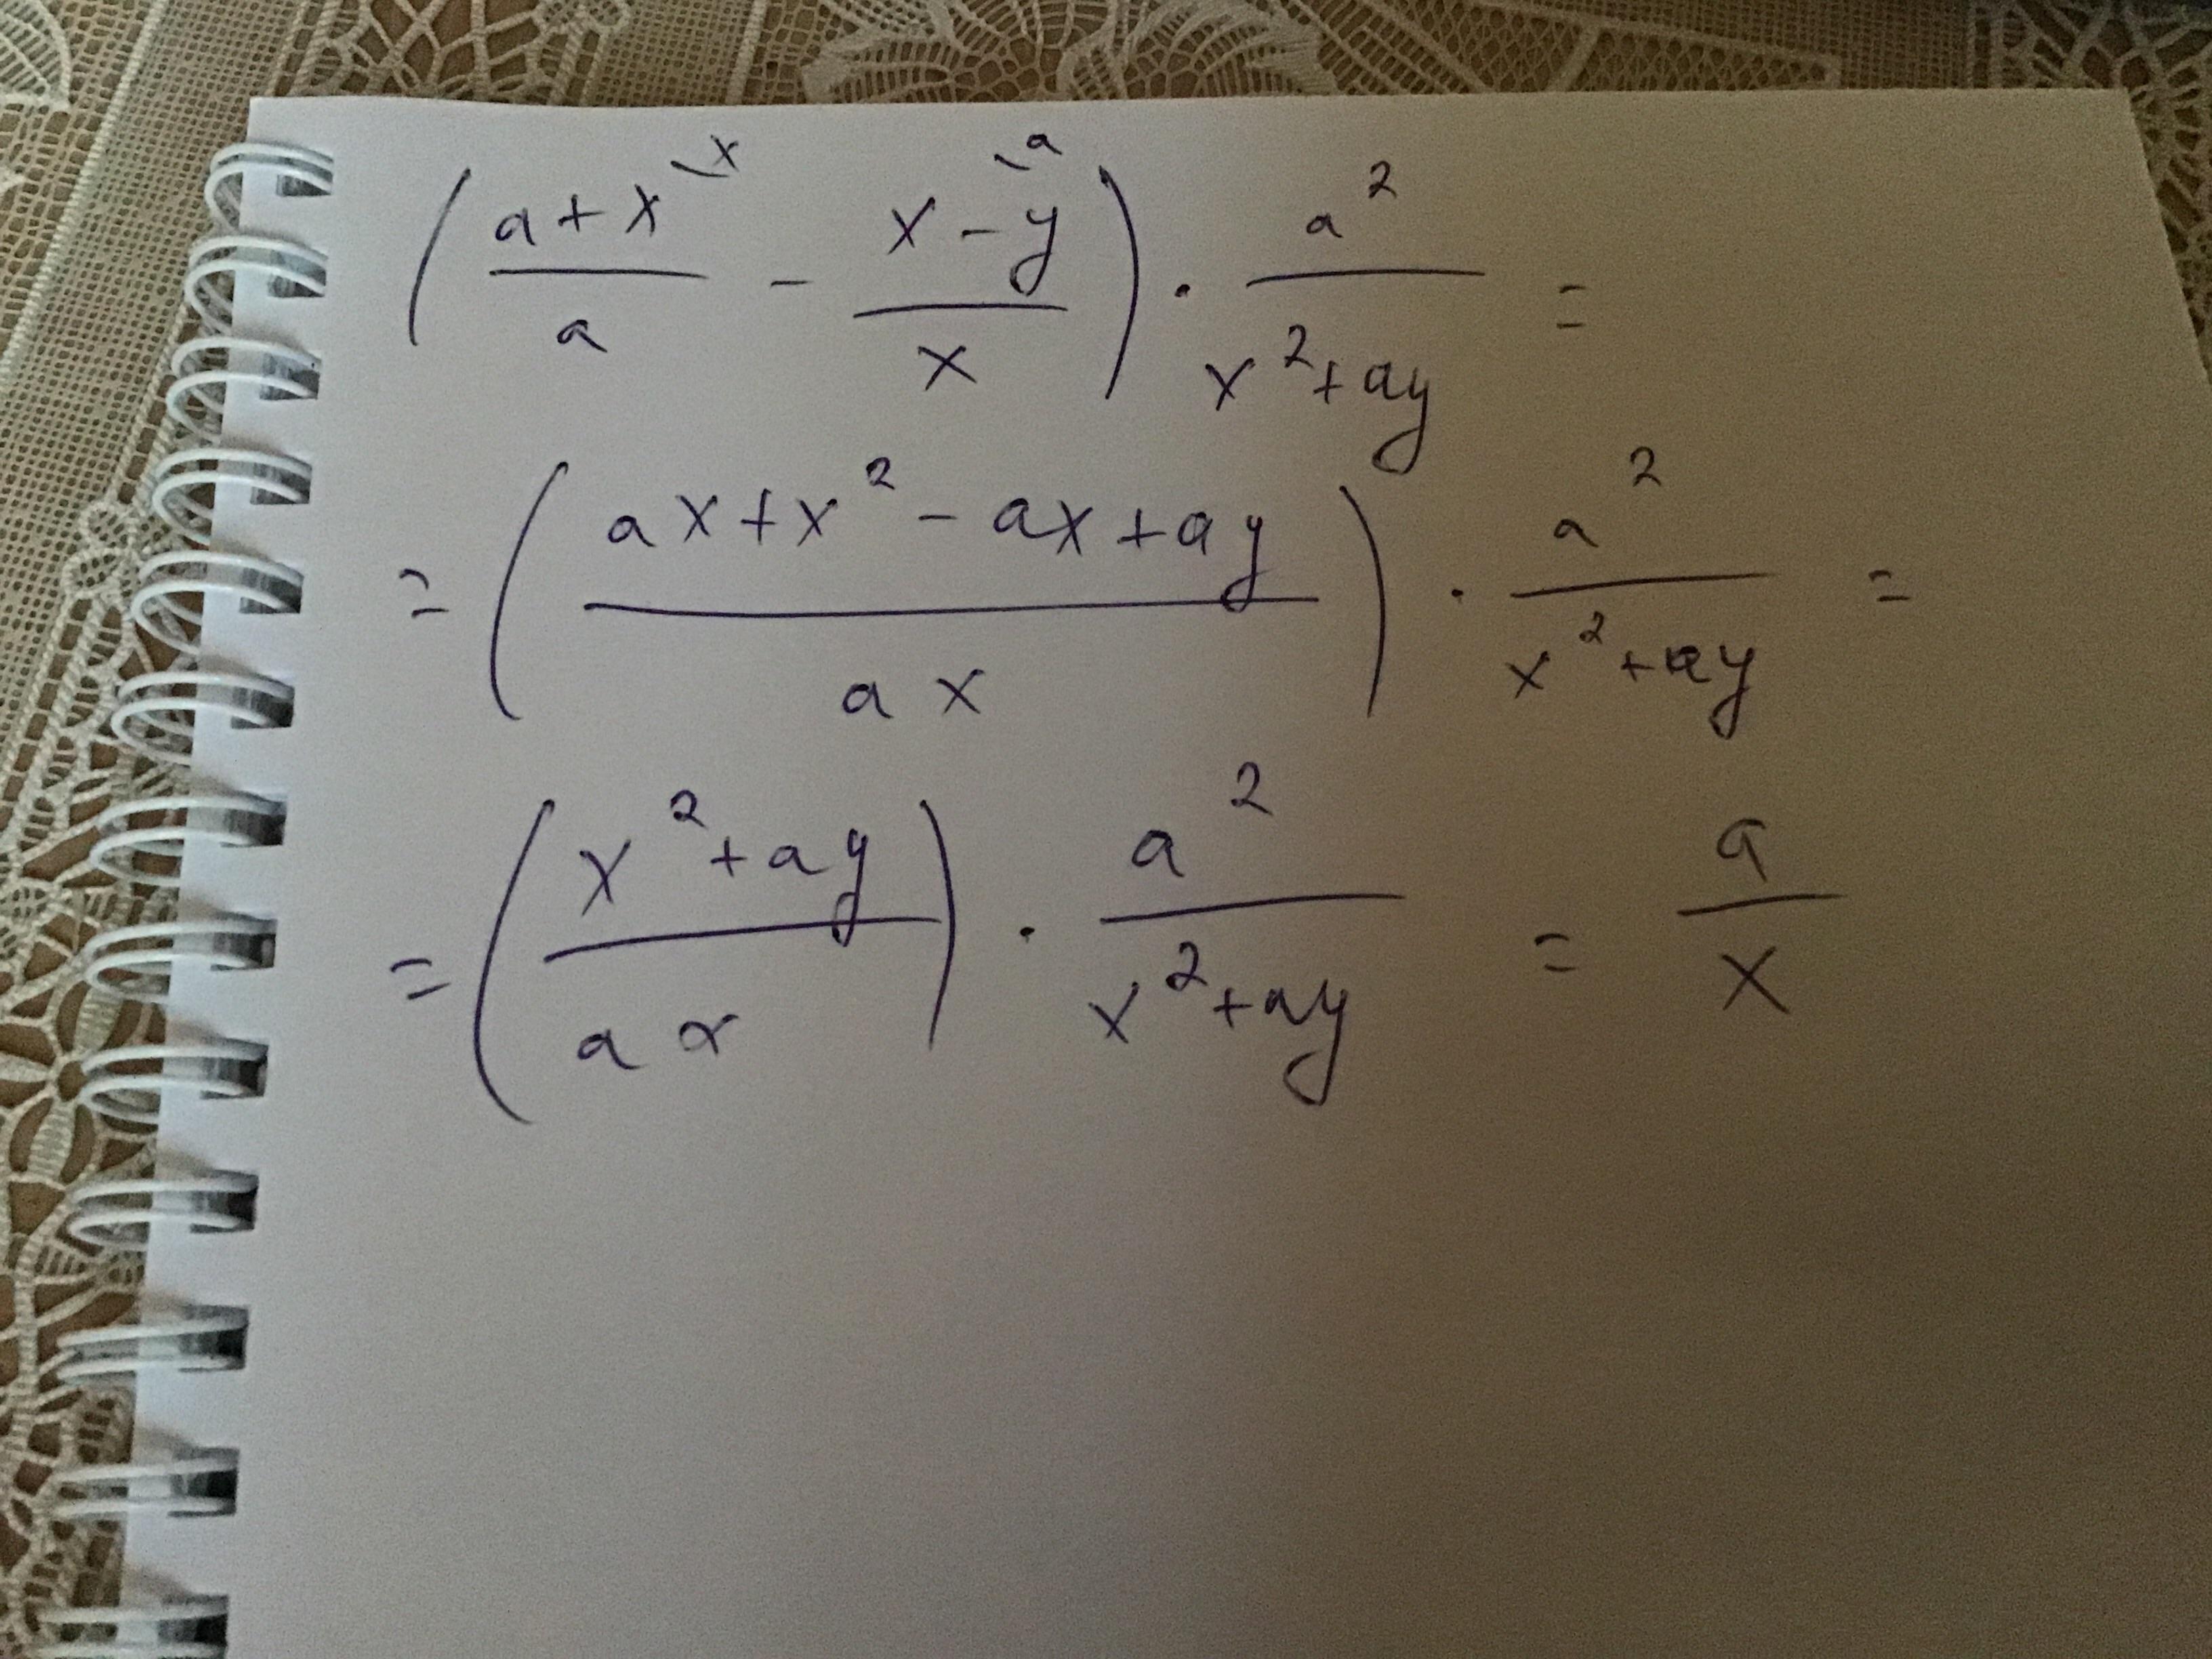 ( (a+x)/a \x - (x-y)/x \a ) · a²/(x²+ay) =
= ( (ax+x²-ax+ay)/(ax) ) · a²/(x²+ay) =
= ( (x²+ay)/(ax) ) · a²/(x²+ay) = a/x